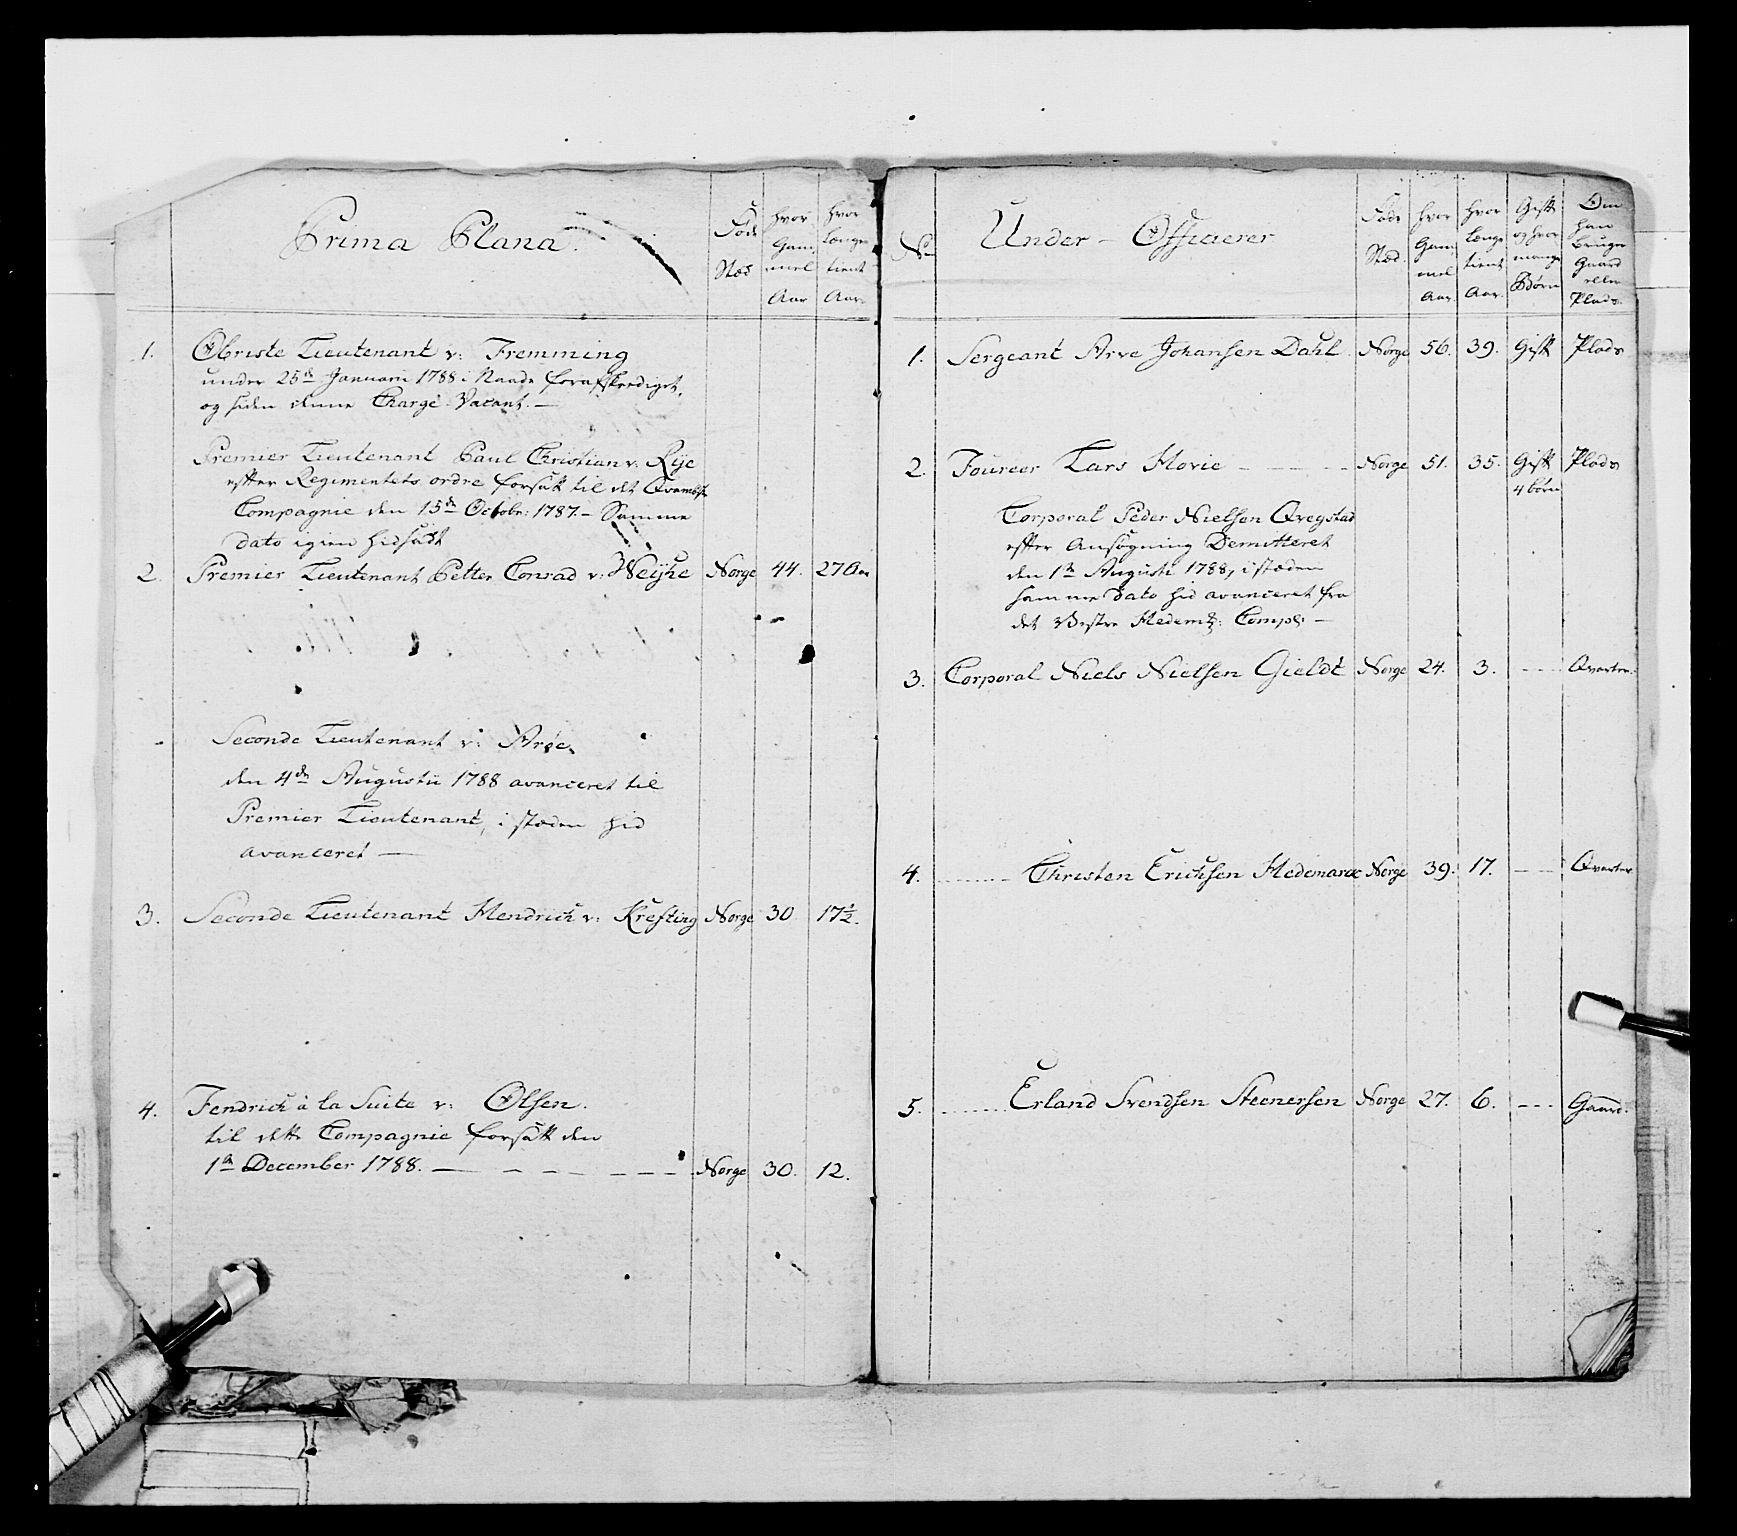 Prima Plana.
Føde Stæd
hvor Gam mel Aar
hvor længe tient Aar.
1. Obriste Lieutenant v: Fremming
under 25de Januarii 1788 i Naade forafskeediget,
og siden denne Charge Vacant. —
Premier Lieutenant Paul Christian v: Rije
efter Regimentets ordre forsadt til det
Compagnie den 15de Octobr: 1787. – Samme
dato igien hidsadt
2. Premier Lieutenant Petter Conrad v: Weijhe Norge 44. 27 Aar
Seconde Lieutenant v: Arøe,
den 4de Augustii 1788 avanceret til
Premier Lieutenant, i stæden hid
avanceret —
3. Seconde Lieutenant Hendrich v: Krefting Norge 30 17½.
4. Fendrich à la Suite v: Olsen.
til dette Compagnie forsatt den
1te December 1788. — — — — — — Norge 30. 12.
No Under – Officierer
Føde Stæd.
hvor Gam mel Aar.
hvor længe tient Aar.
Gift og hvor mange Børn
Om han bruger Gaard eller Plads.
1. Sergeant Arve Johansen Dahl. Norge 56. 39. Gift Plads
2. Foureer Lars Hovie – – – – Norge 51. 35. Gift Plads
4 børn
Corporal Peder Nielsen Qvegstad
efter Ansøgning Demitteret
den 1te Augusti 1788, i stæden
samme dato hid avanceret fra
det Vestre Hedem: Comp: –
3. Corporal Niels Nielsen Gieldt Norge 24. 3. – – – Qvarteer.
4. – – – – Christen Erichsen Hedemarck Norge 39. 17. – – – Qvarteer
5. – – – – Erland Svendsen Steenersen Norge 27. 6. – – – Gaard.